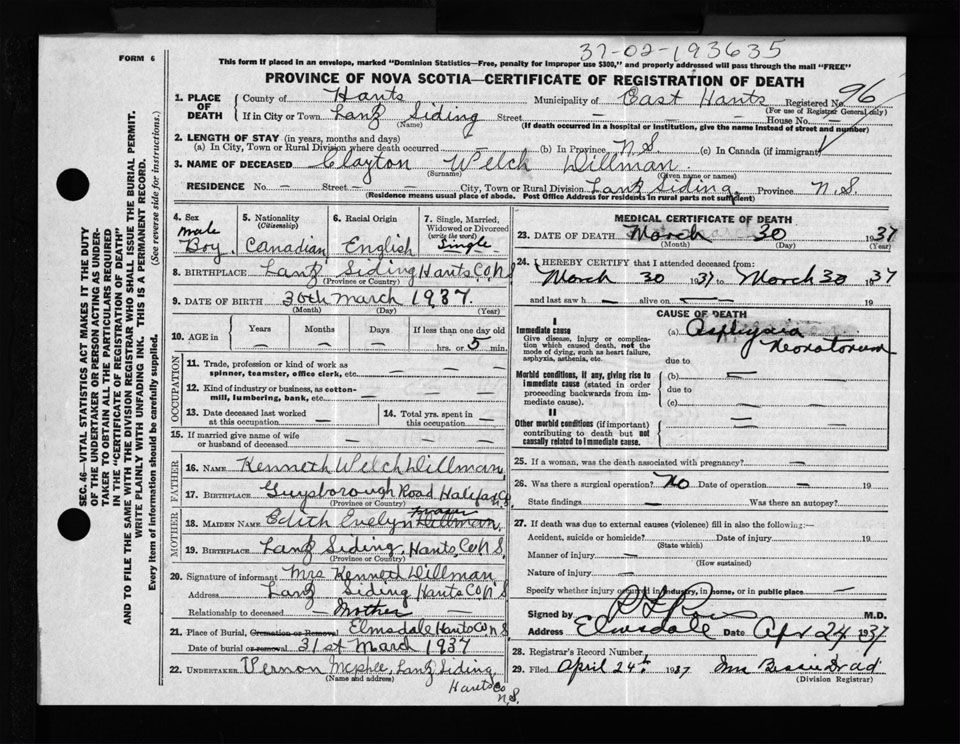 37-02-193635
FORM 6
This form if placed in an envelope, marked "Dominion Statistics—Free, penalty for improper use $300," and properly addressed will pass through the mail "FREE"
PROVINCE OF NOVA SCOTIA—CERTIFICATE OF REGISTRATION OF DEATH
SEC. 46—VITAL STATISTICS ACT MAKES IT THE DUTY
OF THE UNDERTAKER OR PERSON ACTING AS UNDER-
TAKER TO OBTAIN ALL THE PARTICULARS REQUIRED
IN THE "CERTIFICATE OF REGISTRATION OF DEATH"
AND TO FILE THE SAME WITH THE DIVISION REGISTRAR WHO SHALL ISSUE THE BURIAL PERMIT.
WRITE PLAINLY WITH UNFADING INK. THIS IS A PERMANENT RECORD.
Every item of information should be carefully supplied. (See reverse side for instructions.)
1. PLACE OF DEATH County of Hants Municipality of East Hants Registered No. 96
(For use of Registrar General only)
If in City or Town Lantz Siding Street — — House No. —
(Name) (If death occurred in a hospital or institution, give the name instead of street and number)
2. LENGTH OF STAY (in years, months and days)
(a) In City, Town or Rural Division where death occurred — (b) In Province N.S. (c) In Canada (if immigrant)
3. NAME OF DECEASED Clayton Welch Dillman.
(Surname) (Given name or names)
RESIDENCE No. — Street — — City, Town or Rural Division Lantz Siding, Province N.S.
(Residence means usual place of abode. Post Office Address for residents in rural parts not sufficient)
4. Sex male Boy.
5. Nationality (Citizenship) Canadian
6. Racial Origin English
7. Single, Married, Widowed or Divorced (write the word) Single
8. BIRTHPLACE Lantz Siding Hants Co. N S
(Province or Country)
9. DATE OF BIRTH 30th March 1937.
(Month) (Day) (Year)
10. AGE in Years — Months — Days — If less than one day old
hrs. or 5 min.
OCCUPATION
11. Trade, profession or kind of work as
spinner, teamster, office clerk, etc. —
12. Kind of industry or business, as cotton-
mill, lumbering, bank, etc. —
13. Date deceased last worked
at this occupation —
14. Total yrs. spent in
this occupation —
15. If married give name of wife
or husband of deceased —
FATHER
16. NAME Kenneth Welch Dillman,
17. BIRTHPLACE Guysborough Road Halifax Co. N.S.
(Province or Country)
MOTHER
18. MAIDEN NAME Edith Evelyn Dillman,
19. BIRTHPLACE Lantz Siding, Hants, Co. N S.
(Province or Country)
20. Signature of informant Mrs Kenneth Dillman
Address Lantz Siding Hants Co. N S
Relationship to deceased — Mother —
21. Place of Burial, Cremation or Removal Elmsdale Hants Co. N S
Date of burial or removal 31st March 1937
22. UNDERTAKER Vernon McPhee, Lantz Siding,
(Name and address)
Hants Co N.S.
MEDICAL CERTIFICATE OF DEATH
23. DATE OF DEATH March 30 1937
(Month) (Day) (Year)
24. I HEREBY CERTIFY that I attended deceased from:
March 30 1937 to March 30 1937
and last saw h — alive on — 19
CAUSE OF DEATH
I
Immediate cause
Give disease, injury or complica-
tion which caused death, not the
mode of dying, such as heart failure,
asphyxia, asthenia, etc.
(a) Asphyxia
Neonatorum
due to
Morbid conditions, if any, giving rise to
immediate cause (stated in order
proceeding backwards from im-
mediate cause).
(b) —
due to
(c) —
II
Other morbid conditions (if important)
contributing to death but not
causally related to immediate cause.
25. If a woman, was the death associated with pregnancy? —
26. Was there a surgical operation? No Date of operation — 19
State findings — Was there an autopsy?
27. If death was due to external causes (violence) fill in also the following:—
Accident, suicide or homicide? Date of injury 19
(State which)
Manner of injury —
(How sustained)
Nature of injury —
Specify whether injury occurred in industry, in home, or in public place —
Signed by M.D.
Address Elmsdale Date Apr 24 1937
28. Registrar's Record Number
29. Filed April 24th 1937 Mrs Bessie
(Division Registrar)